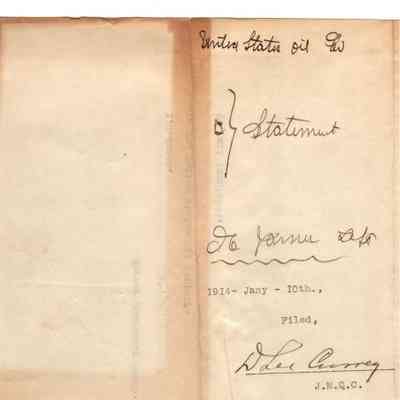 United States Oil Co
Statement
1914- Jany - 10th.,
Filed,
D Lee Currey
J.M.Q.C.